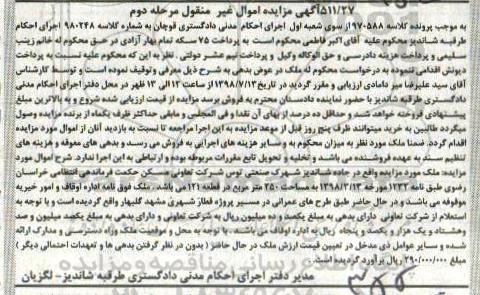 ۵۱۱/۲۷آگهی مزایده اموال غیر منقول مرحله دوم
به موجب پرونده کلاسه ۹۷۰۵۸۸ از سوی شعبه اول اجرای احکام مدنی دادگستری قوچان به شماره کلاسه ۹۸۰۲۴۸ اجرای احکام
طرقبه شاندیز محکوم علیه آقای اکبر فاطمی محکوم است به پرداخت ۷۵ سکه تمام بهار آزادی در حق محکوم له خانم زینب
سلیمی و پرداخت هزینه دادرسی و حق الوکاله وکیل و پرداخت نیم عشر دولتی. نظر به این که محکوم علیه نسبت به پرداخت
دیونش اقدامی ننموده به درخواست محکوم له ملک در عوض بدهی به شرح ذیل معرفی و توقیف نموده است و توسط کارشناس
آقای سید علیرضا میر دامادی ارزیابی و مقرر گردید در تاریخ ۱۳۹۸/۷/۱۳ از ساعت ۱۲ الی ۱۳ ظهر در محل دفتر اجرای احکام مدنی
دادگستری طرقبه شاندیز با حضور نماینده دادستان محترم به فروش برسد مزایده از قیمت ارزیابی شده شروع و به بالاترین مبلغ
پیشنهادی فروخته خواهد شد و حداقل ده درصد از بهای آن نقدا و فی المجلس و مابقی حداکثر ظرف یکماه از برنده مزایده وصول
میگردد طالبین به خرید میتوانند ظرف پنج روز قبل از موعد مزایده به این اجرا مراجعه تا نسبت به بازدید آنان از اموال مورد مزایده
اقدام گردد. ضمنا ملک مورد نظر به میزان محکوم به و سایر هزینه های اجرایی به فروش می رسد و بدهی های معوقه و هزینه های
تنظیم سند به عهده فروشنده می باشد و تخلیه و تحویل تابع مقررات مربوطه بوده و ارتباطی به این اجرا ندارد. شرح اموال مورد
مزایده: ملک مورد مزایده واقع در جاده شاندیز شهرک صنعتی توس شرکت تعاونی مسکن حکمت فرماندهی انتظامی خراسان
رضوی طبق نامه ۱۲۳۲ مورخه ۱۳۹۸/۳/۱۳ به مساحت ۲۵۰ متر مربع در قطعه ۱۲۱ می باشد. ملک فوق نامه اداره اوقاف و امور خیریه
موقوفه می باشد و در حال حاضر طبق طرح های عمرانی در مسیر پروژه قطار شهری مشهد گلبهار واقع گردیده است و با توجه به
استعلام از شرکت تعاونی دارای بدهی به مبلغ یکصد و ده میلیون ریال به شرکت تعاونی و دارای بدهی به مبلغ یکصد میلیون و صد
وهشتاد و یک هزار و یکصد و پنجاه ریال به اداره اوقاف می باشد. با توجه به محل و موقعیت ملک وراه دسترسی و مدارک ارائه
شده و سایر عوامل ذی مدخل در تعیین قیمت ارزش ملک در حال حاضر ( بدون در نظر گرفتن بدهی ها و تعهدات احتمالی دیگر ) مبلغ
۲۹۰/۰۰۰/۰۰۰ ریال برآورد گردیده است.
مدیر دفتر اجرای احکام مدنی دادگستری طرقبه شاندیز- لگزیان